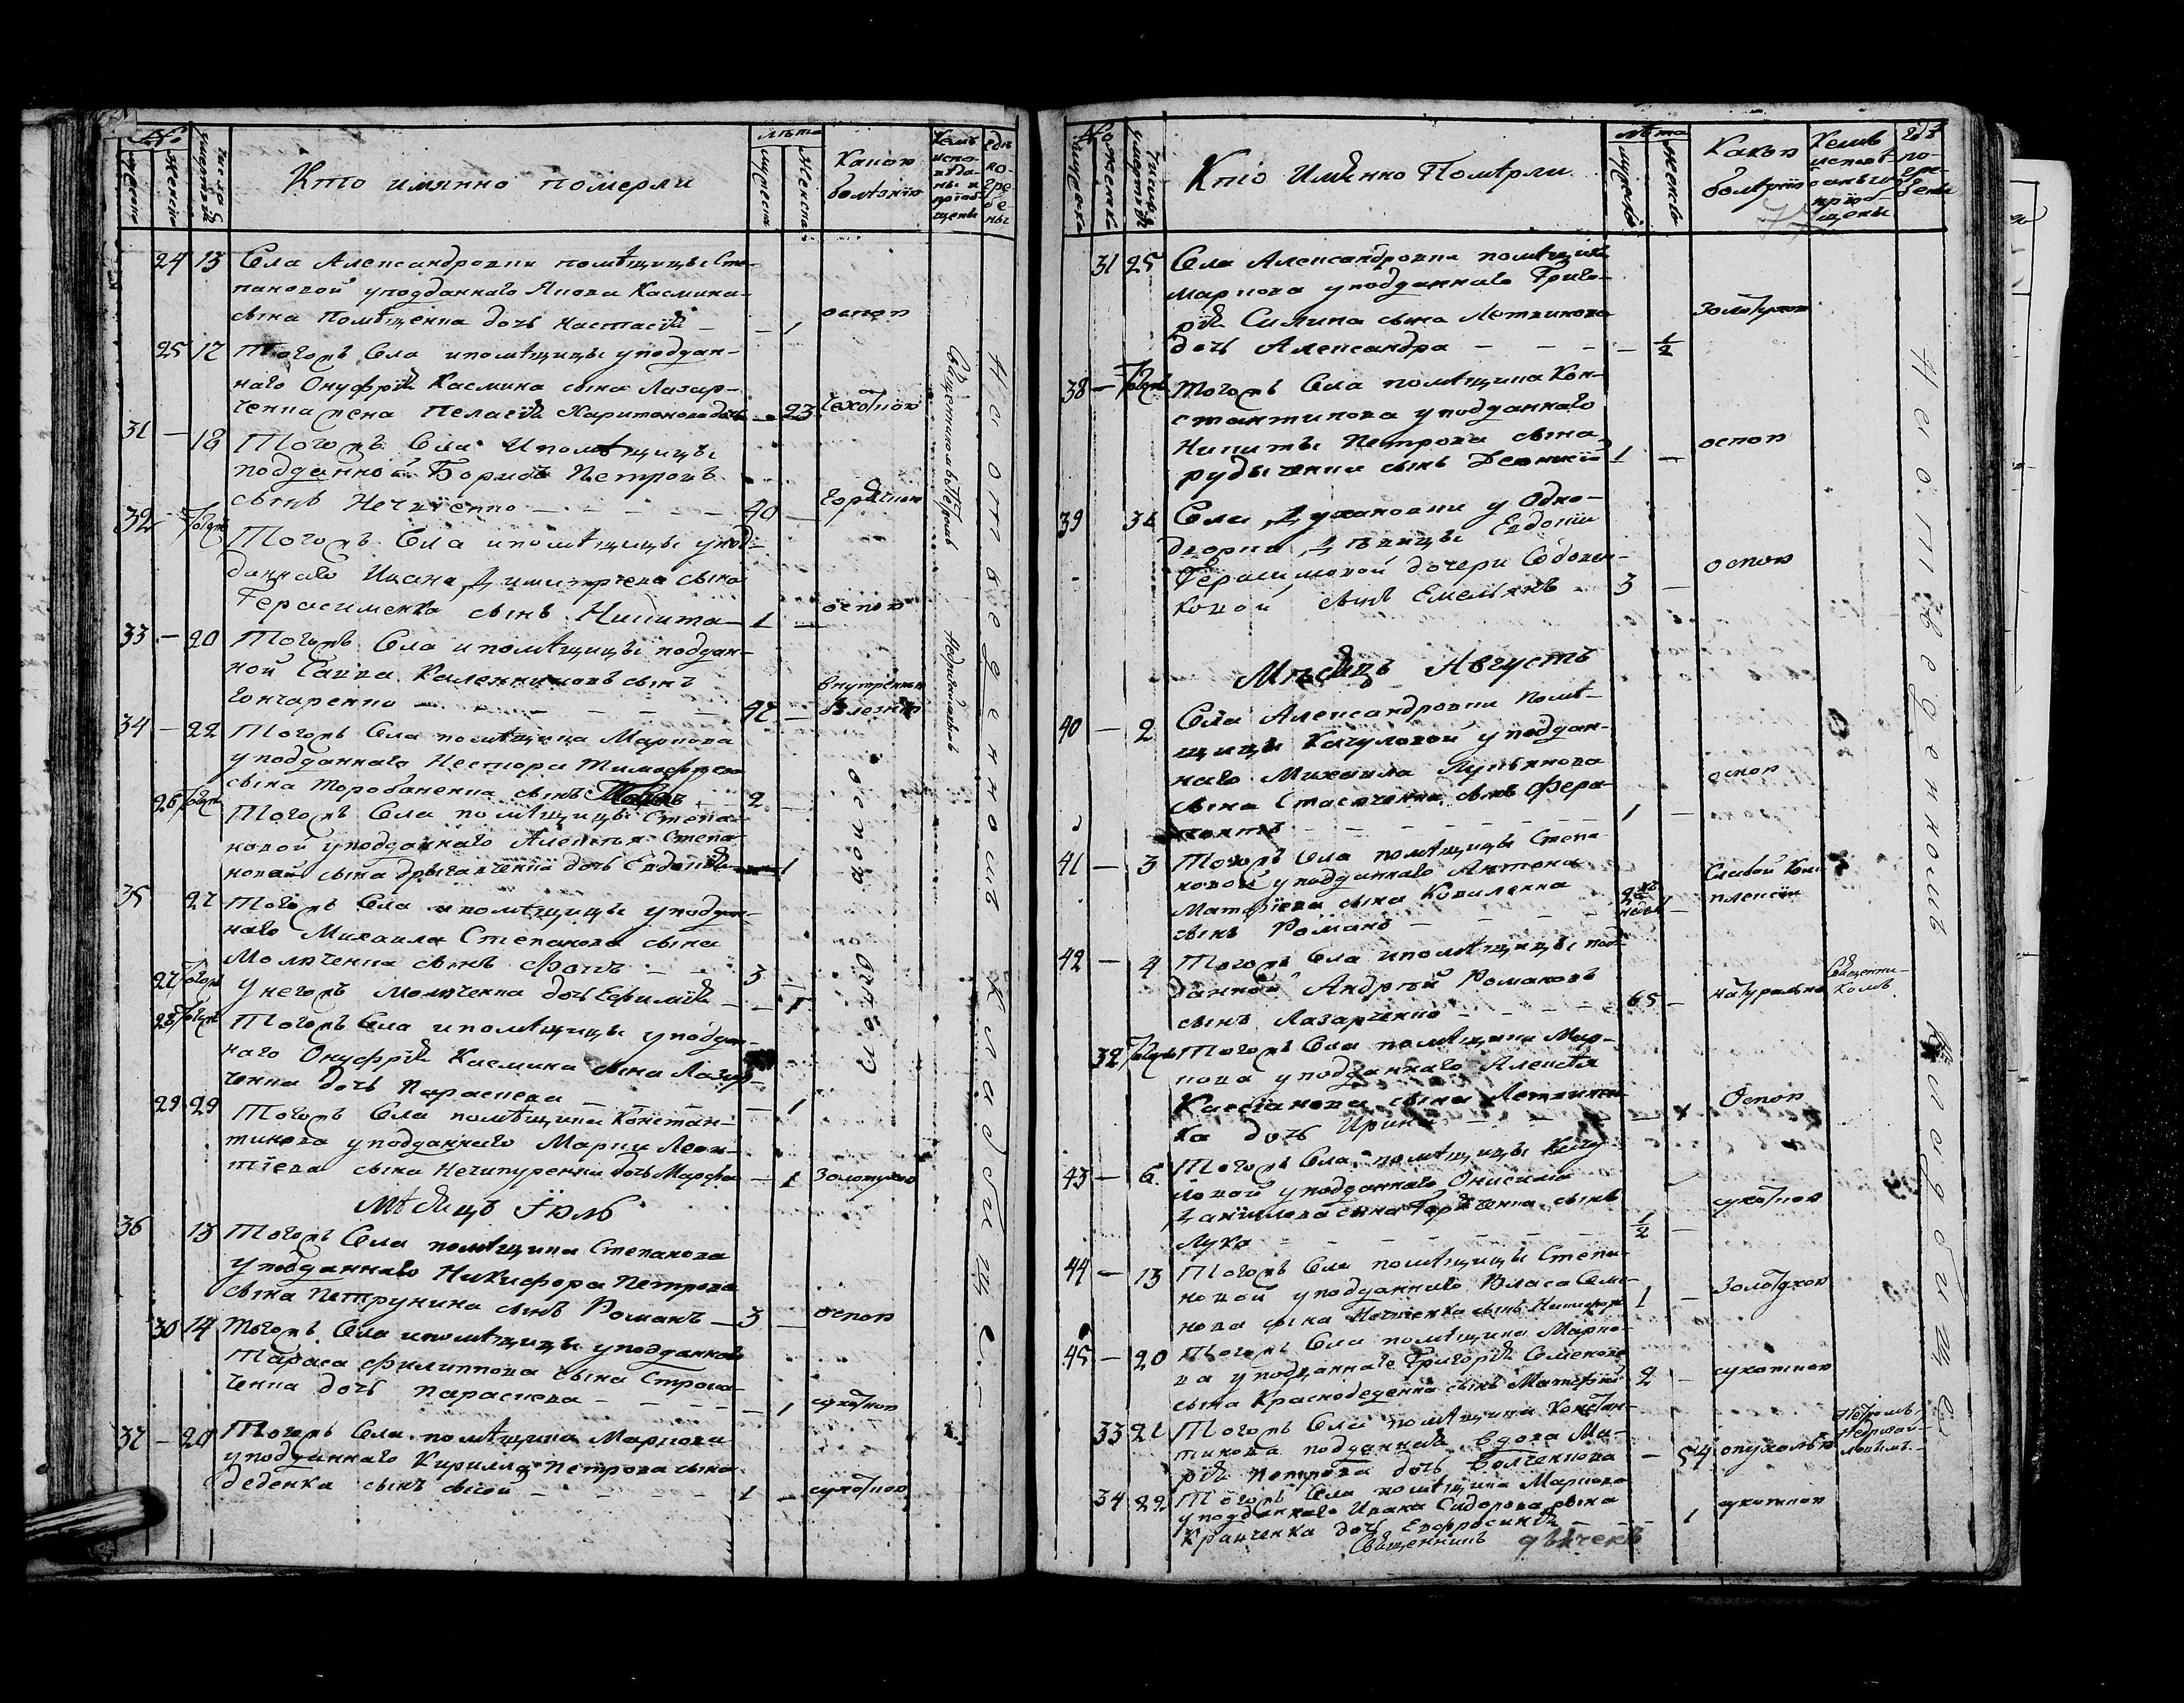 №
мужеска
женска
число умертвій
Кто имянно померли
лѣта
мужеска
женска
Какою болѣзнію
Кемъ исповѣданы и пріобщены
Гдѣ погребены
24 13 Села Александровки помѣщицы Сте-
пановой у подданнаго Якова Касмина
сына Помѣщенка дочь Настасія — — 1 оспою
25 17 Тогожъ Села и помѣщицы у поддан-
наго Онуфрія Касмина сына Лазар-
ченка жена Пелагія Харитонова дочь — 23 чехоткою
31 — 18 Тогожъ Села и помѣщицы
подданной Борисъ Петровъ
сынъ Нечаенко — 40 — горячкою
32 — Тогожъ Тогожъ Села и помѣщицы у под-
даннаго Ивана Димитріева сына
Герасименка сынъ Никита — 1 — оспою
33 — 20 Тогожъ Села и помѣщицы поддан-
ной Савва Каленниковъ сынъ
Гончаренко — 47 — внутреннею болезнію
34 — 22 Тогожъ Села помѣщика Маркова
у подданнаго Нестора Тимофѣева
сына Торобаненка сынъ — 2 —
26 Тогожъ Тогожъ Села помѣщицы Степа-
новой у подданнаго Алексѣя Степа-
нова сына дочь Евдокія — 1
35 27 Тогожъ Села и помѣщицы у поддан-
наго Михаила Степанова сына
Молявченка сынъ Фока — 3
27 Тогожъ у негожъ Молявченка дочь Ефимія — — 1
28 Тогожъ Тогожъ Села и помѣщицы у поддан-
наго Онуфрія Касмина сына Лазар-
ченка дочь Параскева — — 1
оспою
оспою
29 29 Тогожъ Села помѣщика Констан-
тинова у подданнаго Марки Леон-
тіева сына Нечипуренка дочь Марфа — 1 золотухою
Мѣсяцъ Іюль
36 13 Тогожъ Села помѣщика Степанова
у подданнаго Никифора Петрова
сына Петрунина сынъ Романъ — 3 — оспою
30 14 Тогожъ Села и помѣщицы у подданнаго
Тараса Филиппова сына Строка-
ченка дочь Параскева — — 1 сухоткою
37 — 20 Тогожъ Села помѣщика Маркова
у подданнаго Кирилла Петрова сына
Деденка сынъ — 1 — сухоткою
Священникомъ Петромъ Недригайловымъ
На отведенномъ кладбищѣ
№
мужеска
женска
число умертвій
Кто Имянно Помѣрли
лѣта
мужеска
женска
Какою болѣзнію
Кемъ исповѣданы и пріобщены
Гдѣ погребены
31 25 Села Александровки помѣщика
Маркова у подданнаго Григо-
рія Силина сына Лотвинова
дочь Александра — — ½ золотухою
38 — Тогожъ Тогожъ Села помѣщика Кон-
стантинова у подданнаго
Никиты Петрова сына
Рудыченка сынъ 1 — оспою
39 31 Села Духановки у Одно-
дворки Дѣвицы Евдокіи
Герасимовой дочери
сынъ Емельянъ 3 — оспою
Мѣсяцъ Августъ
40 — 2 Села Александровки помѣ-
щицы Качуловой у поддан-
наго Михаила Лукьянова
сына Стасченка сынъ Фера-
понтъ — 1 — оспою
41 — 3 Тогожъ Села помѣщицы Степа-
новой у подданнаго Антона
Матфіева сына Коваленка
сынъ Романъ — недель — Слабой Ком-
плекціи
42 — 4 Тогожъ Села и помѣщицы под-
данной Андрей Романовъ
сынъ Лазарченко — 65 — натурально Священни-
комъ
32 Тогожъ Тогожъ Села помѣщика Мар-
кова у подданнаго Алексѣя
Кассіанова сына Лотвинен-
ка дочь Ирина — — 1 Оспою
43 — 6 Тогожъ Села помѣщицы Качу-
ловой у подданнаго Онисима
Данилова сына сынъ
Лука — ½ — сухоткою
44 — 13 Тогожъ Села помѣщицы Степа-
новой у подданнаго Власа Семе-
нова сына сынъ Никифоръ 1 — Золотухою
45 — 20 Тогожъ Села помѣщика Марко-
ва у подданнаго Григорія Семенова
сына Краснодеденка сынъ Матфей 2 — сухоткою
33 21 Тогожъ Села помѣщика Констан-
тинова подданная вдова Ма-
рія Петрова дочь Волченкова — 54 опухолью Петромъ
Недригай-
ловымъ
34 22 Тогожъ Села помѣщика Маркова
у подданнаго Ивана Сидорова сына
Кравченка дочь Евфросинія — 1 сухоткою
Священникъ
На отведенномъ кладбищѣ